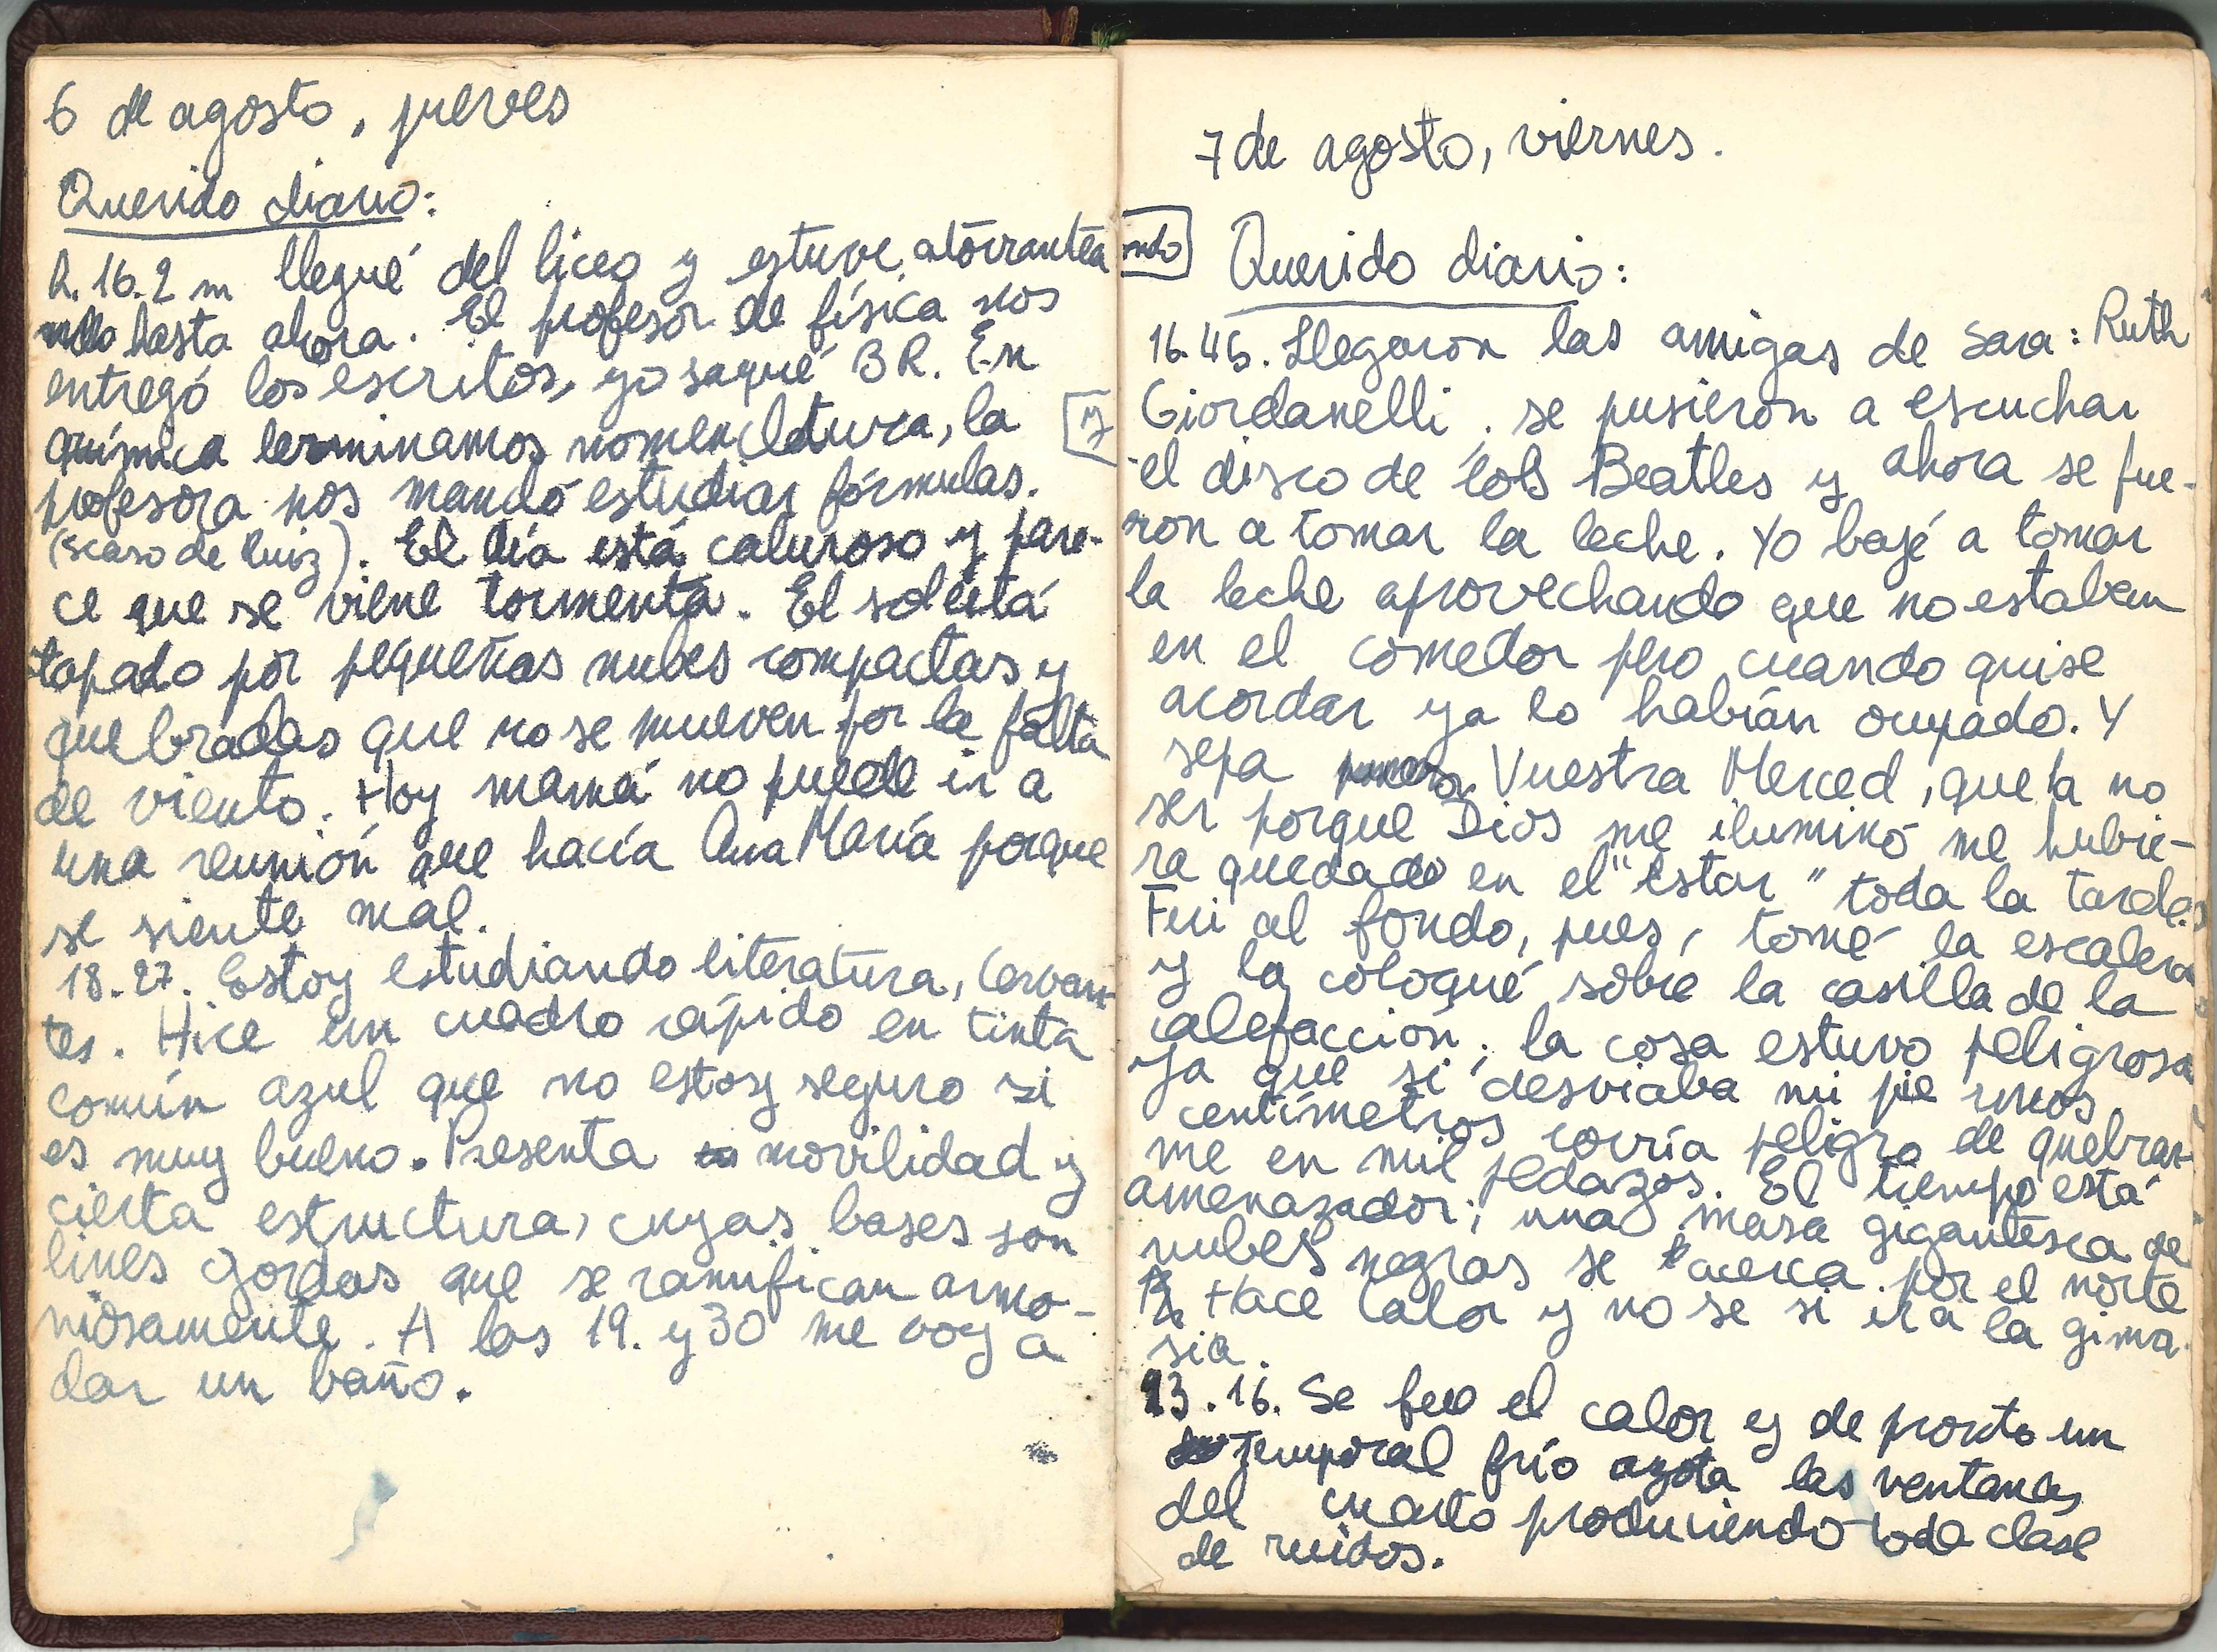 6 de agosto, jueves
Querido diario:
h. 16.2 m llegué del liceo y estuve atorrantea
ndo hasta ahora. El profesor de física nos
entregó los escritos, yo saqué BR. En
química terminamos nomencletura, la
profesora nos mandó estudiar fórmulas.
(scaso de Ruiz). El día está caluroso y pare-
ce que se viene tormenta. El sol está
tapado por pequeñas nubes compactas y
quebradas que no se mueven por la falta
de viento. Hoy mamá no puede ir a
una reunión que hacía Ana María porque
se siente mal.
18.27. Estoy estudiando literatura, Cervan-
tes. Hice un cuadro rápido en tinta
común azul que no estoy seguro si
es muy bueno. Presenta movilidad y
cierta estructura, cuyas bases son
lines gordas que se ramifican armo-
niosamente. A las 19. y 30 me voy a
dar un baño.
7 de agosto, viernes.
ondo
Querido diario:
16.45. Llegaron las amigas de Sara: Ruth
y
Giordanelli, se pusieron a escuchar
el disco de lols Beatles y ahora se fue-
ron a tomar la leche. Yo bajé a tomar
la leche aprovechando que no estaban
en el comedor pero cuando quise
acordar ya lo habían ocupado. Y
sepa Vuestra Merced, que a no
ser porque Dios me iluminó me hubie-
ra quedado en el "estar" toda la tarde.
Fui al fondo, pues, tomé la escalera
y la coloqué sobre la casilla de la
calefacción; la cosa estuvo peligrosa
ya que si desviaba mi pie unos
centímetros corría peligro de quebrar-
me en mil pedazos. El tiempo está
amenazador; una masa gigantesca de
nubes negras se acerca por el norte
Hace calor y no se si ir a la gimna-
sia.
23.16. Se fue el calor y de pronto un
temporal frío azota las ventanas
del cuarto produciendo toda clase
de ruidos.